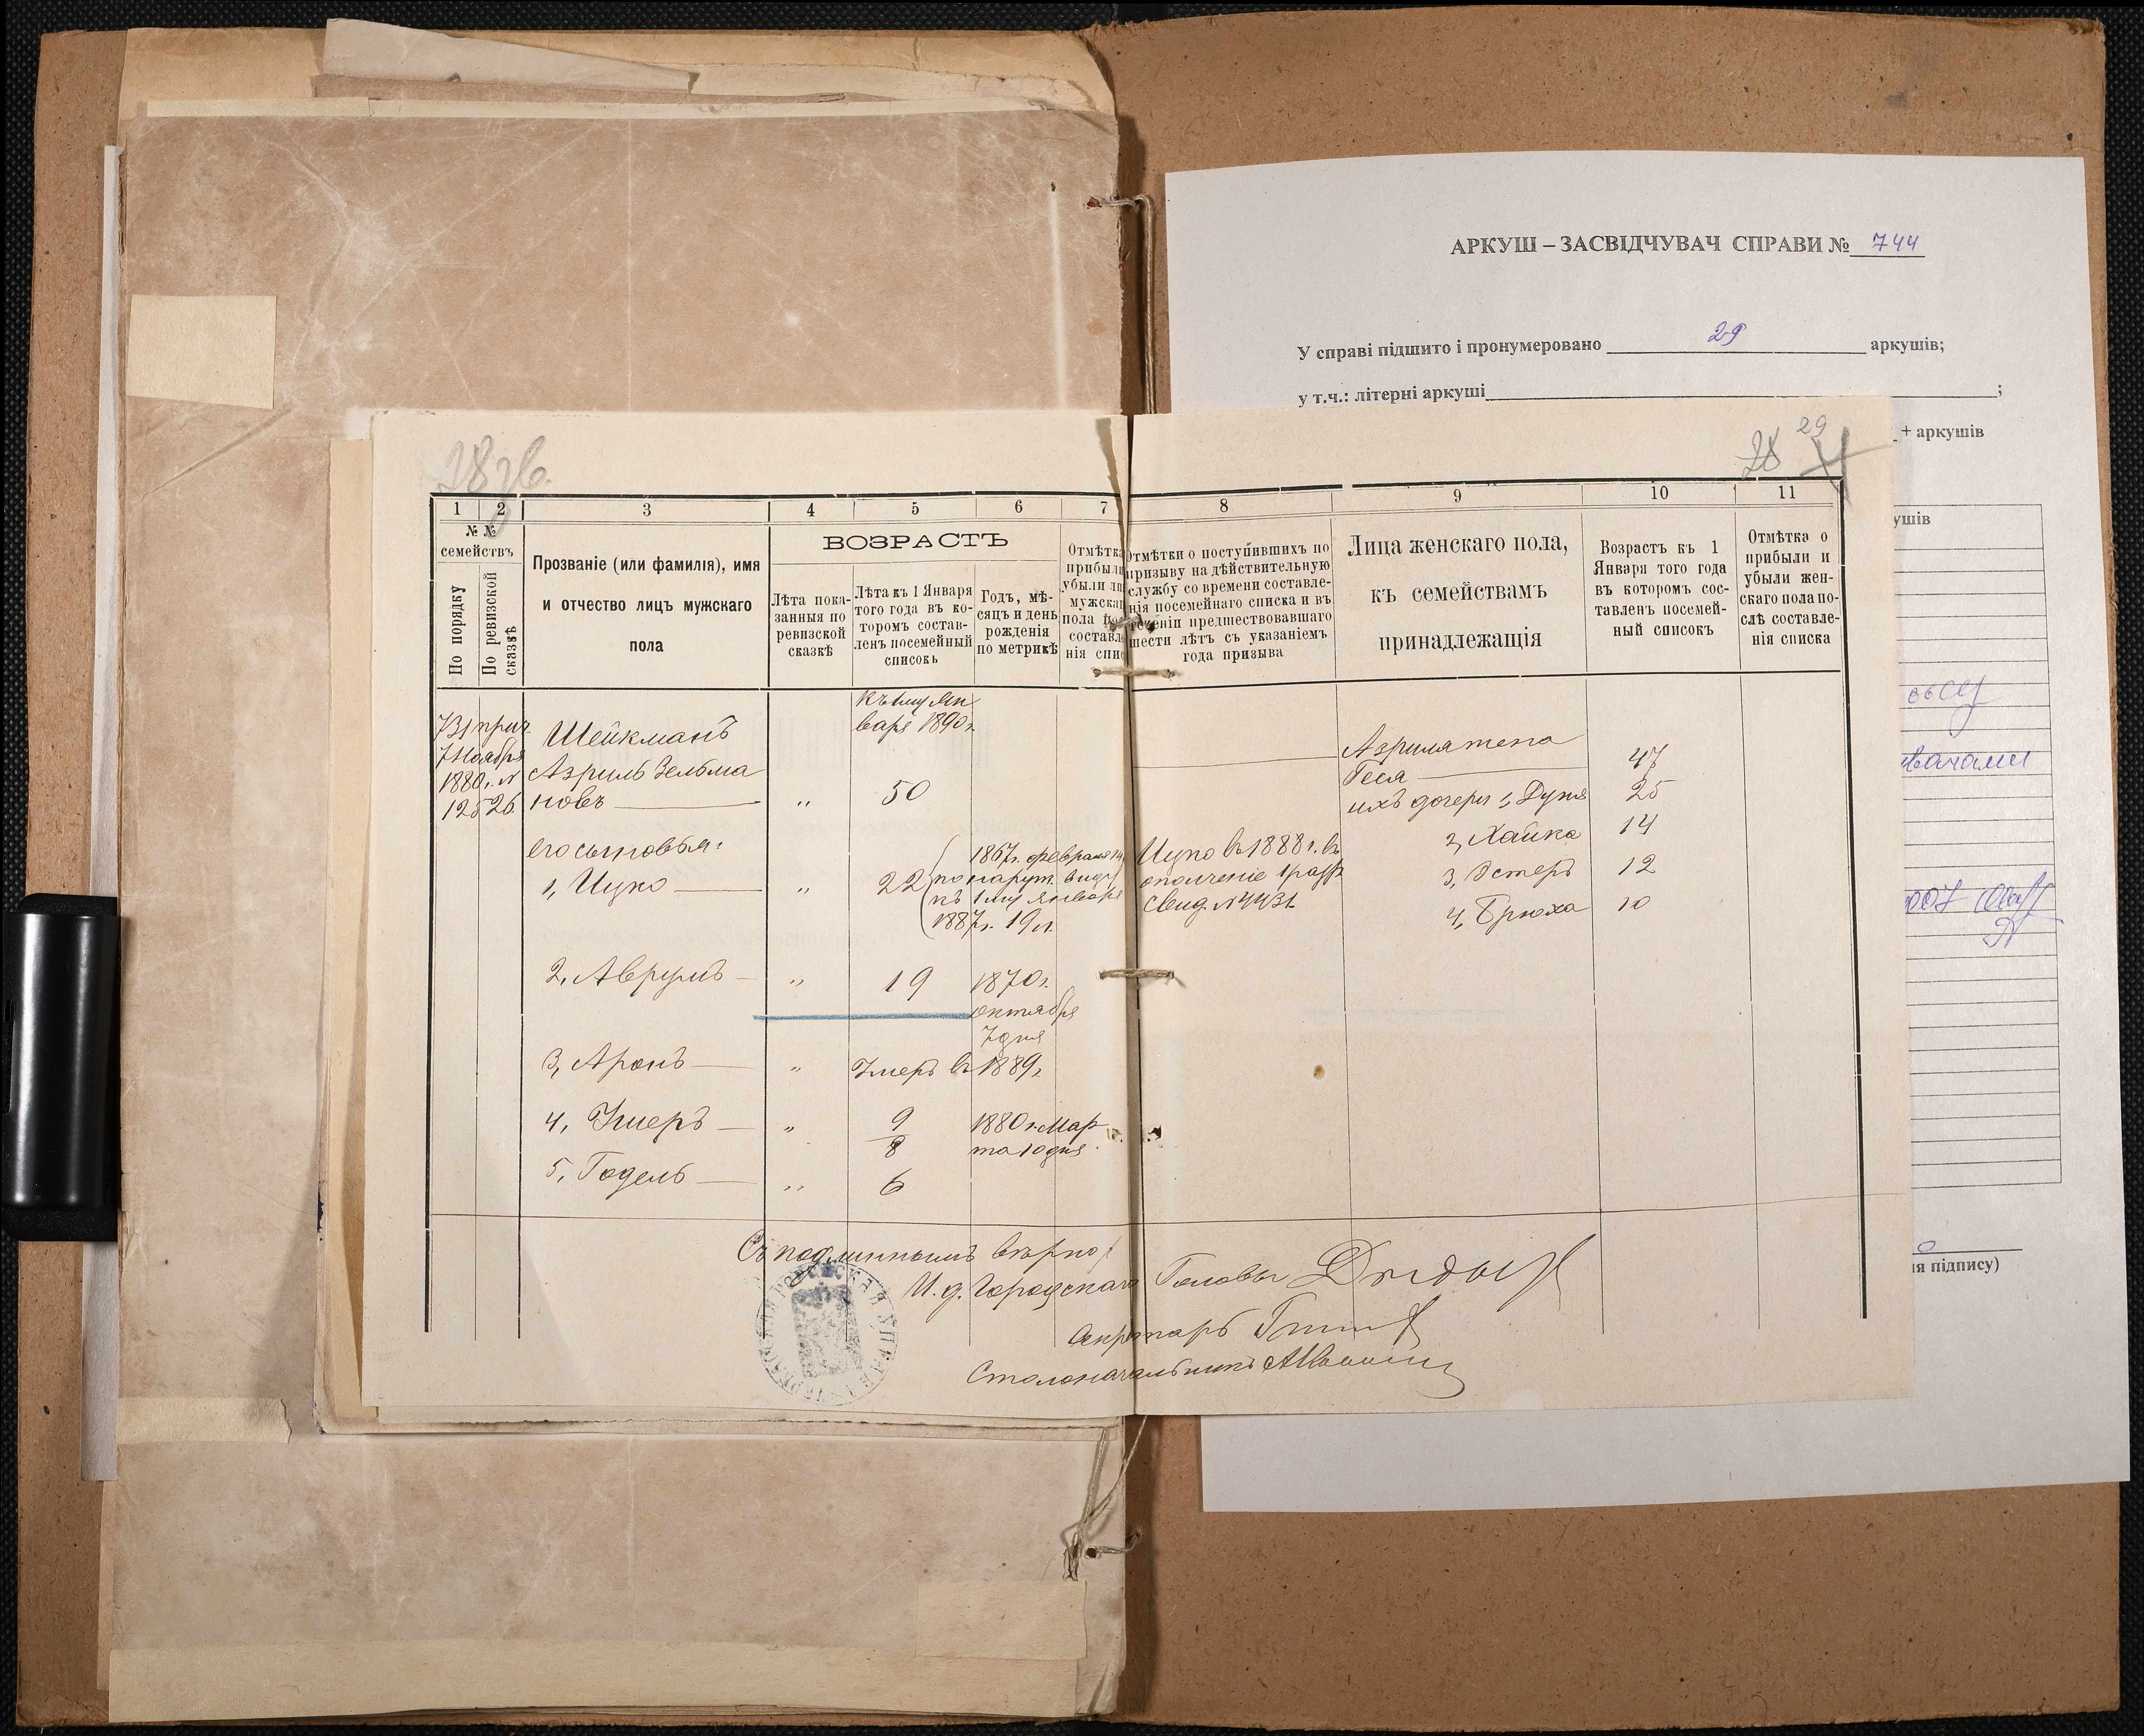 АРКУШ – ЗАСВІДЧУВАЧ СПРАВИ № 744
У справі підшито і пронумеровано 29 аркушів;
у т.ч.: літерні аркуші ;
+ аркушів
ушів
вачами
я підпису)
28 зв.
28 29
1 2 3 4 5 6 7 8 9 10 11
№ №
семействъ
По порядку
По ревизской
сказкѣ
Прозваніе (или фамилія), имя
и отчество лицъ мужскаго
пола
ВОЗРАСТЪ
Лѣта пока-
занныя по
ревизской
сказкѣ
Лѣта къ 1 Января
того года въ ко-
торомъ состав-
ленъ посемейный
списокъ
Годъ, мѣ-
сяцъ и день
рожденія
по метрикѣ
Отмѣтка
прибыли
убыли ли
мужска
пола п
составл
нія спис
Отмѣтки о поступившихъ по
призыву на дѣйствительную
службу со времени составле-
нія посемейнаго списка и въ
теченіи предшествовавшаго
шести лѣтъ съ указаніемъ
года призыва
Лица женскаго пола,
къ семействамъ
принадлежащія
Возрастъ къ 1
Января того года
въ которомъ сос-
тавленъ посемей-
ный списокъ
Отмѣтка о
прибыли и
убыли жен-
скаго пола по-
слѣ составле-
нія списка
къ 1му Ян
варя 1890 г.
731 прич.
7 Ноября
1880 г. №
12526
Шейкманъ
Азриль Зельма
новъ — „ 50
его сыновья:
1, Ицко — „ 22
1867 г. февраля
по наруж. виду
къ 1му Января
1887 г. 19 л.
Ицко въ 1888 г. въ
ополченіе 1 разр.
Свид. № 4431
2, Аврумъ — „ 19 1870 г.
октября
7 дня
3, Аронъ — „ Умеръ въ 1889 г.
4, Умеръ — „ 9 1880 г. Мар
8 та 10 дня.
5, Годель — „ 6
Азриля жена
Геся — 47
ихъ дочери 1, Дуня 25
2, Хайка 14
3, Эстеръ 12
4, Брюха 10
Съ подлиннымъ вѣрно:
И. д. Городскаго Головы
Секретарь
Столоначальникъ